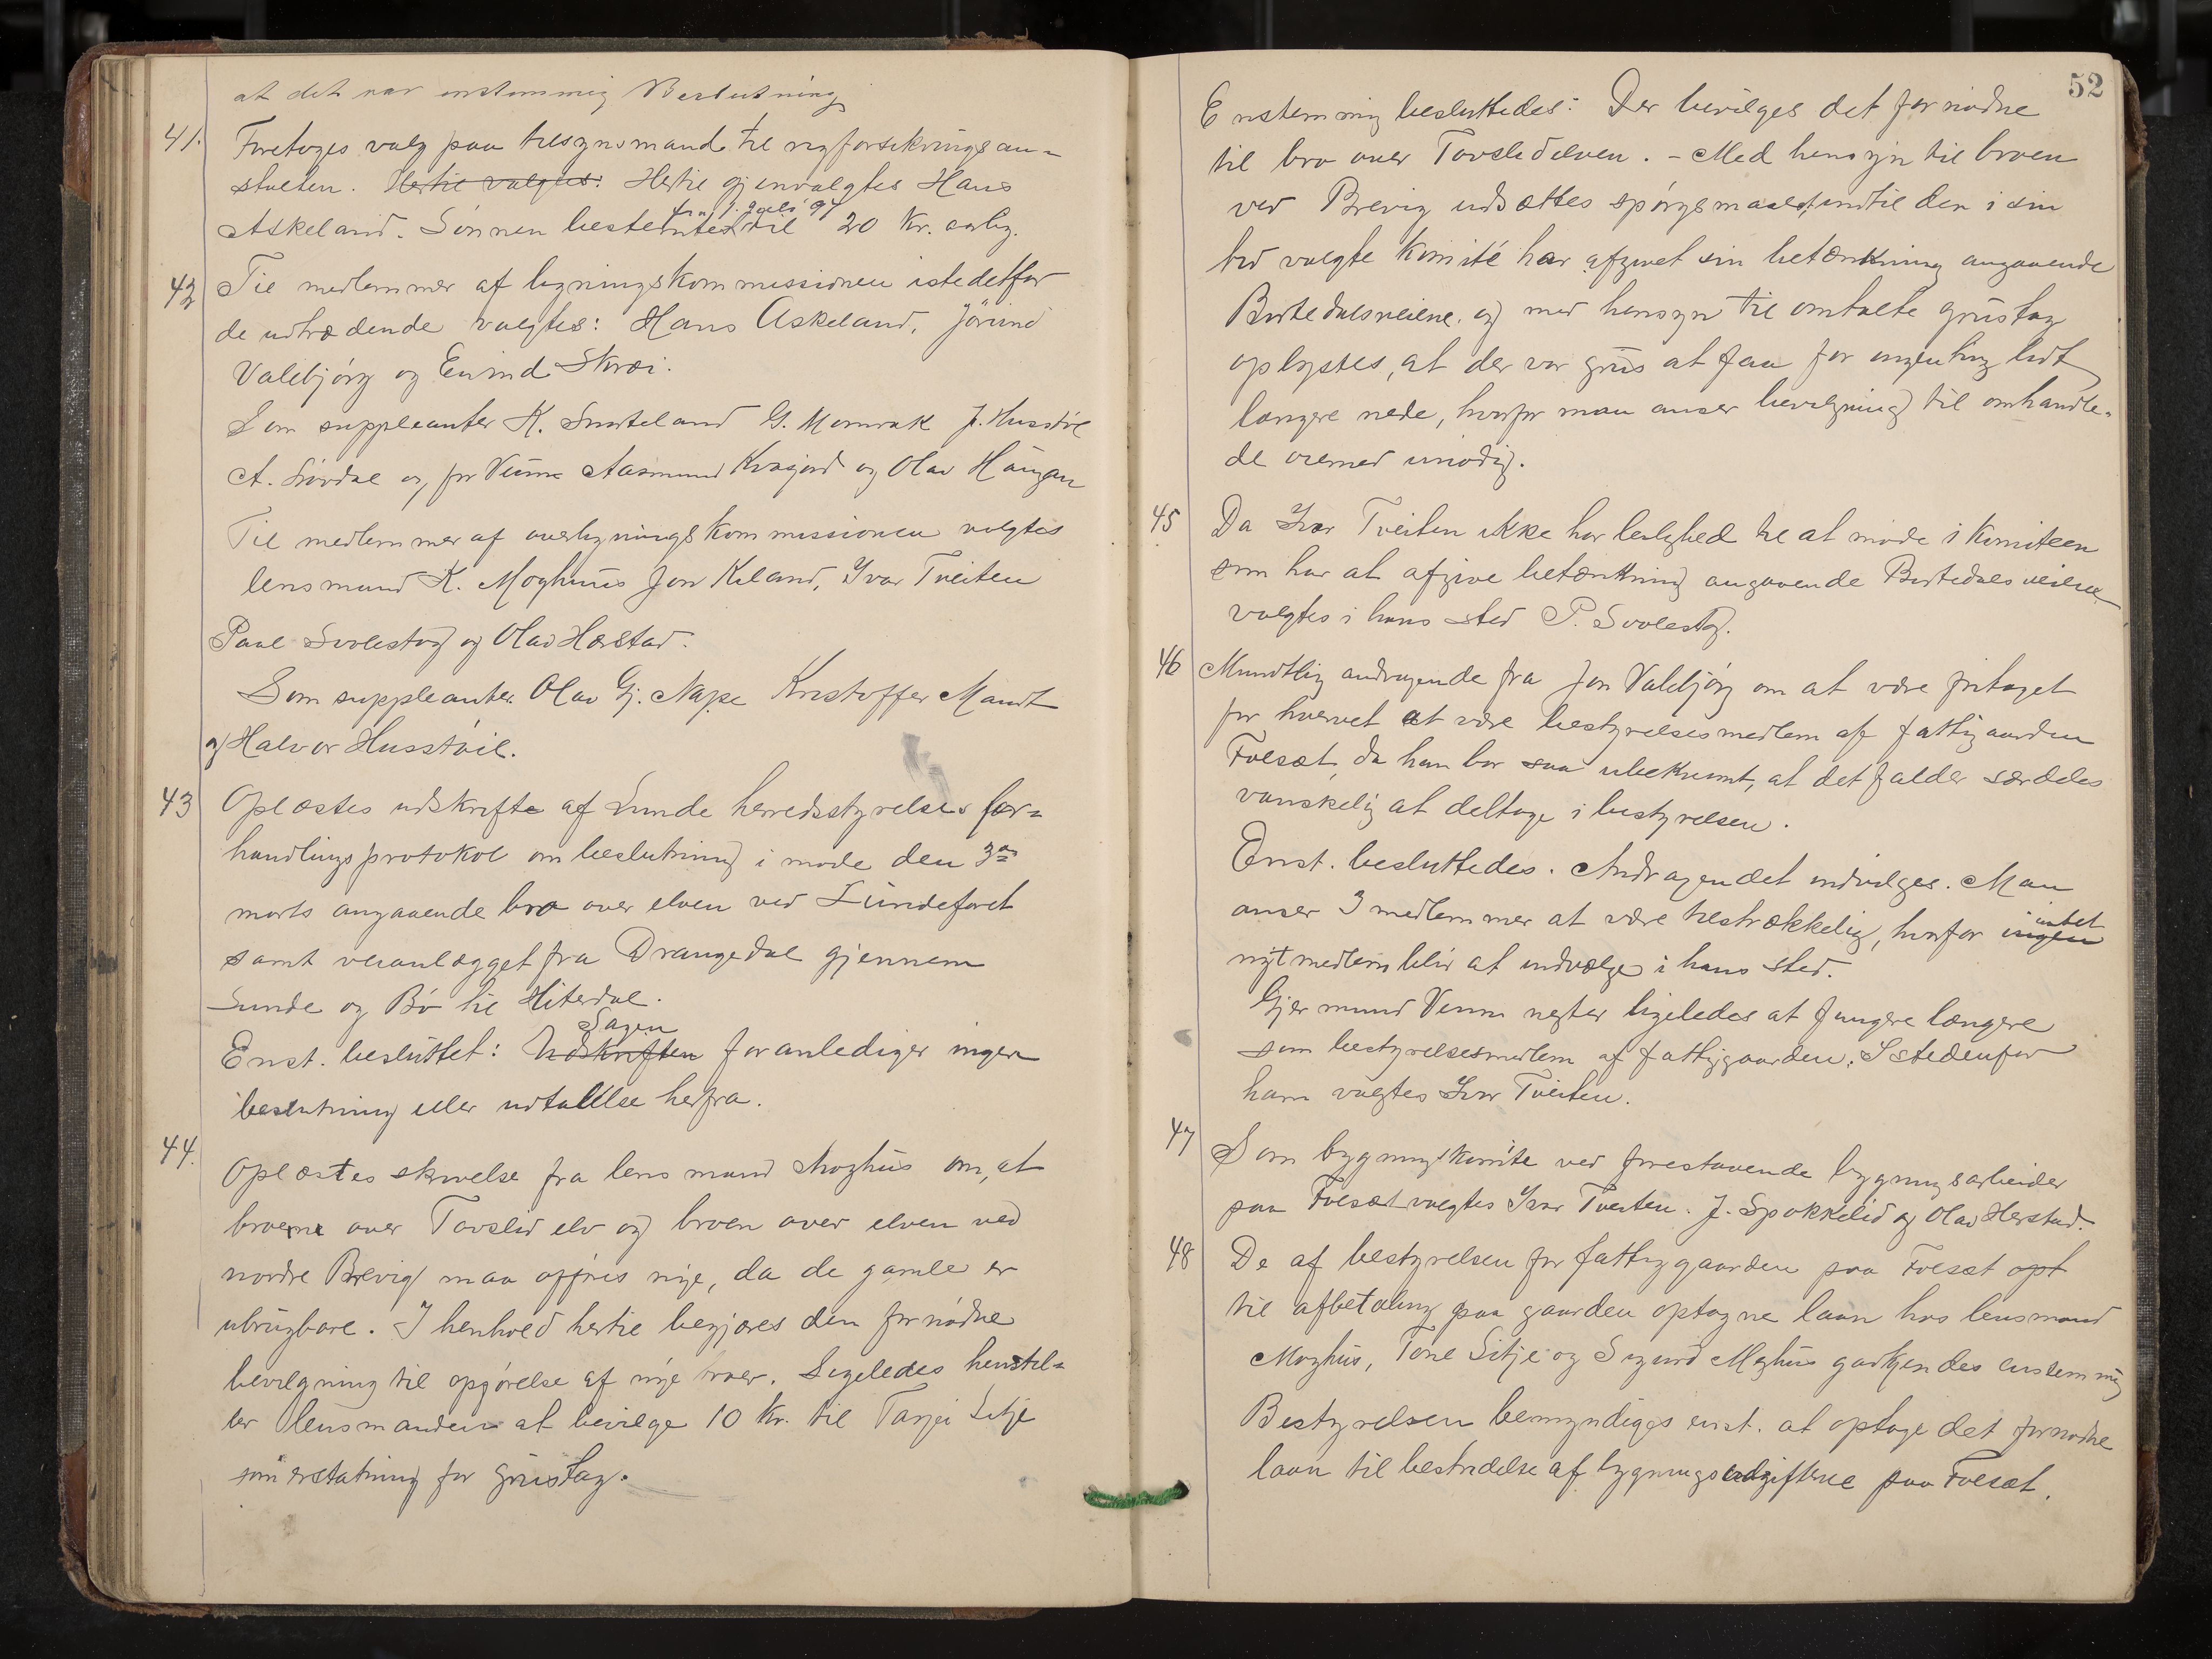 at det var enstemmig Beslutning
41. Foretoges valg paa tilsynsmand til vegforsikringsan-
stalten. Hertil valgtes: Hertil gjenvalgtes Hans
fra 1. juli 94
Askeland. Lønnen bestemtes til 20 Kr. aarlig.
42 Til medlemmer af ligningskommissionen istedetfor
de udtrædende valgtes: Hans Askeland, Jørund
Valebjørg og Eivind Skræi.
Som suppleanter K. Snarteland G. Momrak J. Husstøil
A. Lövdal og for Vinm Aasmund Kvasjord og Olav Haugan
Til medlemmer af overligningskommissionen valgtes
lensmand K. Moghus Jon Kiland, Ivar Tveiten
Paal Svolestog og Olav Hærstad.
Som suppleanter. Olav Gj. Nape Kristoffer Mandt
og Halvor Husstøil.
43 Oplæstes udskrifte af Lunde herredsstyrelses for-
handlingsprotokol om beslutning i møde den 3die
marts angaaende bro over elven ved Lundeforet
samt veianlægget fra Drangedal gjennem
Lunde og Bø til Hiterdal.
Sagen
Enst. besluttet: Udskriften foranlediger ingen
beslutning eller udtalelse herfra.
44. Oplæstes skrivelse fra lensmand Moghus om, at
broerne over Tovslid elv og broen over elven ved
nordre Brevig maa opføres nye, da de gamle er
ubrugbare. I henhold hertil begjæres den fornødne
bevilgning til opførelse af nye broer. Ligeledes henstil-
ler lensmanden at bevilge 10 Kr. til Tarjei Litje
som erstatning for grustag.
52
Enstemmig besluttedes: Der bevilges det fornødne
til bro over Tovslidelven. - Med hensyn til broen
ved Brevig udsættes spørgsmaalet, indtil den i sin
tid valgte Komité har afgivet sin betænkning angaaende
Bostedalsveiene. og med hensyn til omtalte grustag
oplystes, at der var grus at faa for ingenting lidt
længere nede, hvorfor man anser bevilgning til omhandle-
de øiemed unødig.
45 Da Ivar Tveiten ikke har leilighed til at møde i Komiteen
som har at afgive betænkning angaaende Bostedalsveiene
valgtes i hans sted P. Svolestog.
46 Mundtlig andragende fra Jon Valebjørg om at være fritaget
for hvervet at være bestyrelsesmedlem af fattiggaarden
Folesæt, da han bor saa ubekvemt, at det falder særdeles
vanskelig at deltage i bestyrelsen.
Enst. besluttedes. Andragendet indvilges. Man
anser 3 medlemmer at være tilstrækkelig, hvorfor ingen intet
nyt medlem bliv at indvælge i hans sted.
Gjermund Vinm negter ligeledes at fungere længere
som bestyrelsesmedlem af fattiggaarden. Istedenfor
ham valgtes Ivar Tveiten.
47 Som bygningskomite ved forestaaende bygningsarbeider
paa Folesæt valgtes Ivar Tveiten. J. Spokkelid og Olav Herstad.
48 De af bestyrelsen for fattiggaarden paa Folesæt opt
til afbetaling paa gaarden optagne laan hos lensmand
Moghus, Tone Litje og Sigurd Moghus godkjendes enstemmig
Bestyrelsen bemyndiges enst. at optage det fornødne
laan til bestridelse af bygningsudgifterne paa Folesæt.